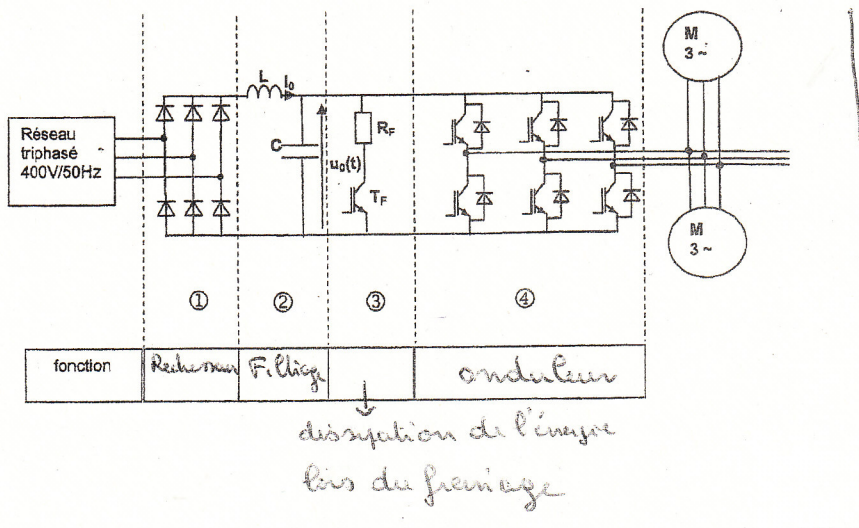 M
3 ~
L I₀
Réseau
triphasé
400V/50Hz
C
u₀(t)
R_F
T_F
M
3 ~
① ② ③ ④
fonction Redresseur Filtrage onduleur
dissipation de l'énergie
lors du freinage